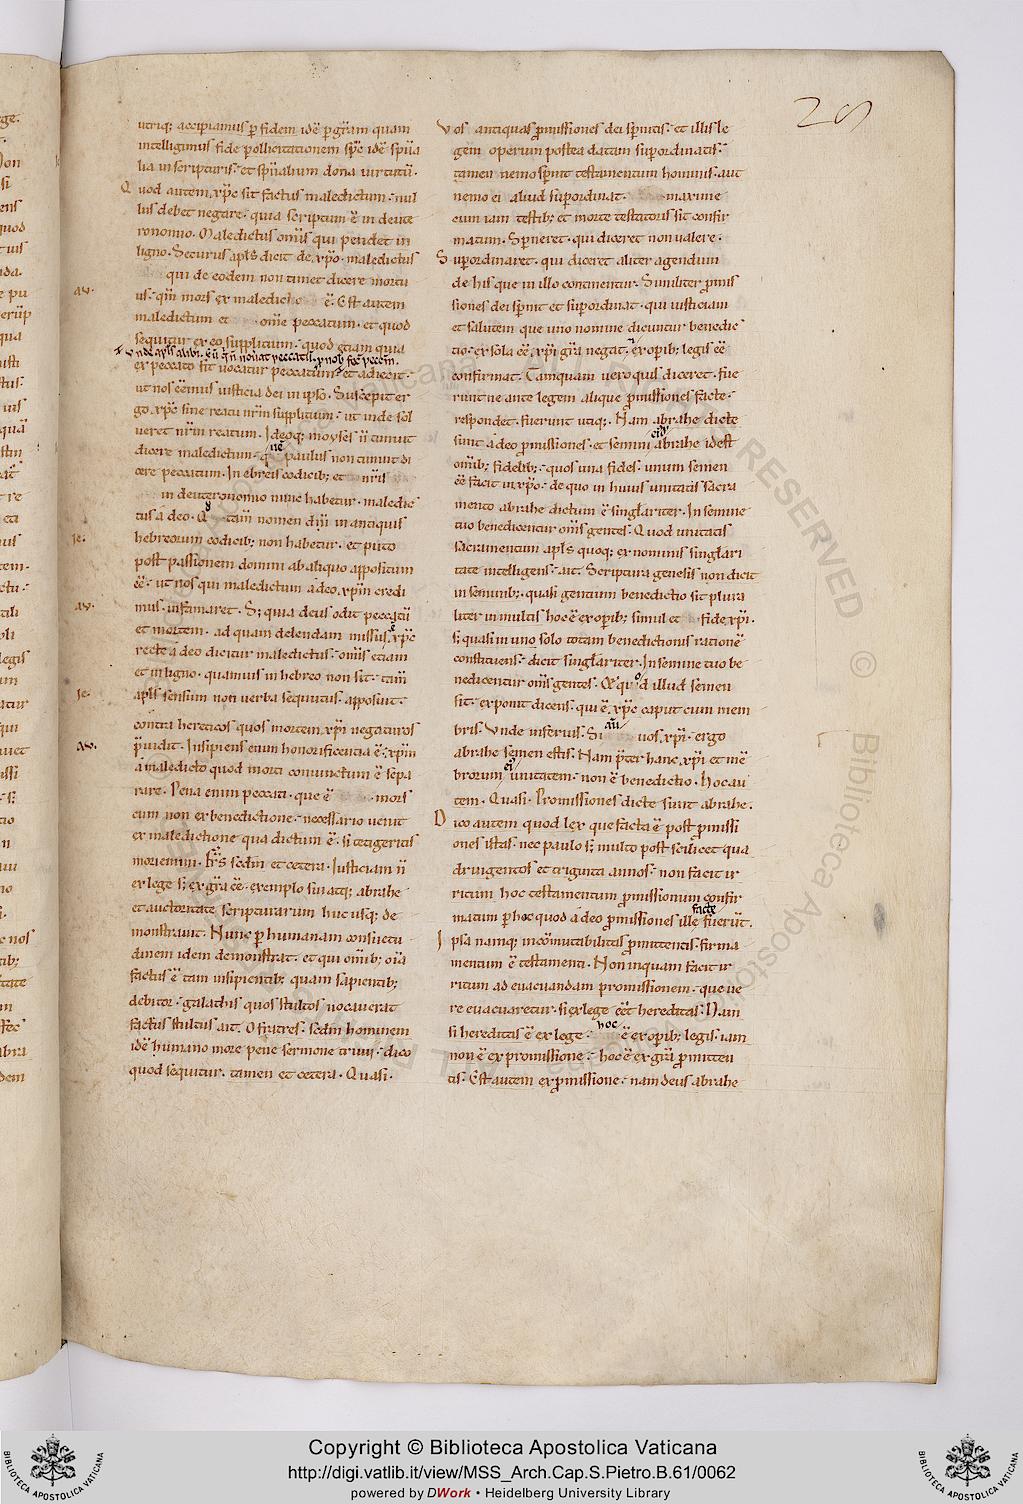 28
utriq; accipiamus ꝑ fidem idē ꝑ gr̄am quam
intelligimus fide pollicitationem sp̄c idē sp̄ua
lia in scripturis. et sp̄ualium dona uirtutū.
Quod autem xp̄c sit factus maledictum. nul
lus debet negare. quia scriptum ē in deute
ronomio. Maledictus om̄is qui pendet in
ligno. Securus apl̄s dicit de xp̄o. maledictus
qui de eodem non timet dicere mortu
au. us. qm̄ mors ex maledicto ē. Est autem
maledictum et om̄e peccatum. et quod
sequitur ex eo supplicium. quod etiam quia
ex peccato fit uocatur peccatum. et adiecit.
ut nos eēmus iusticia dei in ipso. Suscepit er
go xp̄c sine reatu nr̄m supplicium. ut inde sol
ueret nr̄m reatum. Ideoq; moyses n̄ timuit
dicere maledictum. paulus non timuit di
cere peccatum. In ebreis codicib; et nr̄is
in deuteronomio nunc habetur. maledic
tus a deo. Q tam̄ nomen diȷ̄ in antiquis
ie. hebreorum codicib; non habetur. et puto
post passionem domini ab aliquo appositum
eē. ut nos qui maledictum a deo xp̄m credi
au. mus. infamaret. S; quia deus odit peccatū
et mortem. ad quam delendam missus xp̄c
recte a deo dicitur maledictus. om̄is etiam
et in ligno. quamuis in hebreo non sit. tam̄
ie. apl̄s sensum non uerba sequutus. apposuit.
contra hereticos quos mortem xp̄i negaturos
au. p̄uidit. Insipiens enim honorificentia ē. xp̄m
a maledicto quod morti coniunctum ē sepa
rare. Pena enim peccati. que ē mors
cum non ex benedictione. necessario uenit
ex maledictione qua dictum ē. si tetigeritis
moriemini. fr̄s sedm̄ et cetera. Iusticiam n̄
ex lege s; ex gr̄a eē. exemplo sui atq; abrahe
et auctoritate scripturarum huc usq; de
monstrauit. Nunc ꝑ humanam consuetu
dinem idem demonstrat. et qui om̄ib; oīa
factus ē tam insipientib; quam sapientib;
debitor. galathis quos stultos uocauerat
factus stultus ait. O fratres. sedm̄ hominem
idē humano more pene sermone triuii. dico
quod sequitur. tamen et cetera. Quasi.
Vos antiquas ꝓmissiones dei sp̄nitis. et illis le
gem operum postea datam suꝑordinatis.
tamen nemo sp̄nit testamentum hominis. aut
nemo ei aliud suꝑordinat. maxime
cum iam testib; et morte testatoris sit confir
matum. Sp̄neret. qui diceret non ualere.
Suꝑordinaret. qui diceret aliter agendum
de his que in illo continentur. Similiter ꝓmis
siones dei sp̄nit et suꝑordinat. qui iusticiam
et salutem que uno nomine dicuntur benedic
tio. ex sola eē xp̄i gr̄a negat. ex oꝑib; legis eē
confirmat. Tamquam uero quis diceret. fue
runt ne ante legem alique ꝓmissiones facte.
respondet. fuerunt utiq;. Nam abrahe dicte
sunt a deo ꝓmissiones. et semini abrahe id est
om̄ib; fidelib;. quos una fides. unum semen
eē facit in xp̄o. de quo in huius unitatis sacra
mento abrahe dictum ē singlariter. In semine
tuo benedicentur om̄s gentes. Quod unitatis
sacramentum apl̄s quoq; ex nominis singlari
tate intelligens. ait. Scriptura genesis non dicit
in seminib; quasi gentium benedictio sit plura
liter in multis hoc ē ex oꝑib;. simul et fide xp̄i.
s; quasi in uno solo totam benedictionis rationē
constituens. dicit singlariter. In semine tuo be
nedicentur om̄s gentes. Et quod illud semen
sit. exponit dicens. qui ē xp̄c caput cum mem
bris. Vnde inseruis. Si uos xp̄i. ergo
abrahe semen estis. Nam p̄ter hanc xp̄i et mē
brorum ei unitatem. non ē benedictio. Hoc au
tem. Quasi. Promissiones dicte sunt abrahe.
Dico autem quod lex que facta ē post ꝓmissi
ones istas. nec paulo s; multo post scilicet qua
dringentos et triginta annos. non facit ir
ritum hoc testamentum promissionum confir
matum ꝑ hoc quod a deo ꝓmissiones ille facte fuerūt.
Ipsa namq; incōmutabilitas ꝓmittentis. firma
mentum ē testamenti. Non inquam facit ir
ritum ad euacuandam promissionem. que ue
re euacuaretur. si ex lege eēt hereditas. Nam
si hereditas ē ex lege. hoc ē ex oꝑib; legis. iam
non ē ex promissione. hoc ē ex gr̄a ꝓmitten
tis. Est autem ex ꝓmissione. nam deus abrahe
Copyright © Biblioteca Apostolica Vaticana
http://digi.vatlib.it/view/MSS_Arch.Cap.S.Pietro.B.61/0062
powered by DWork • Heidelberg University Library